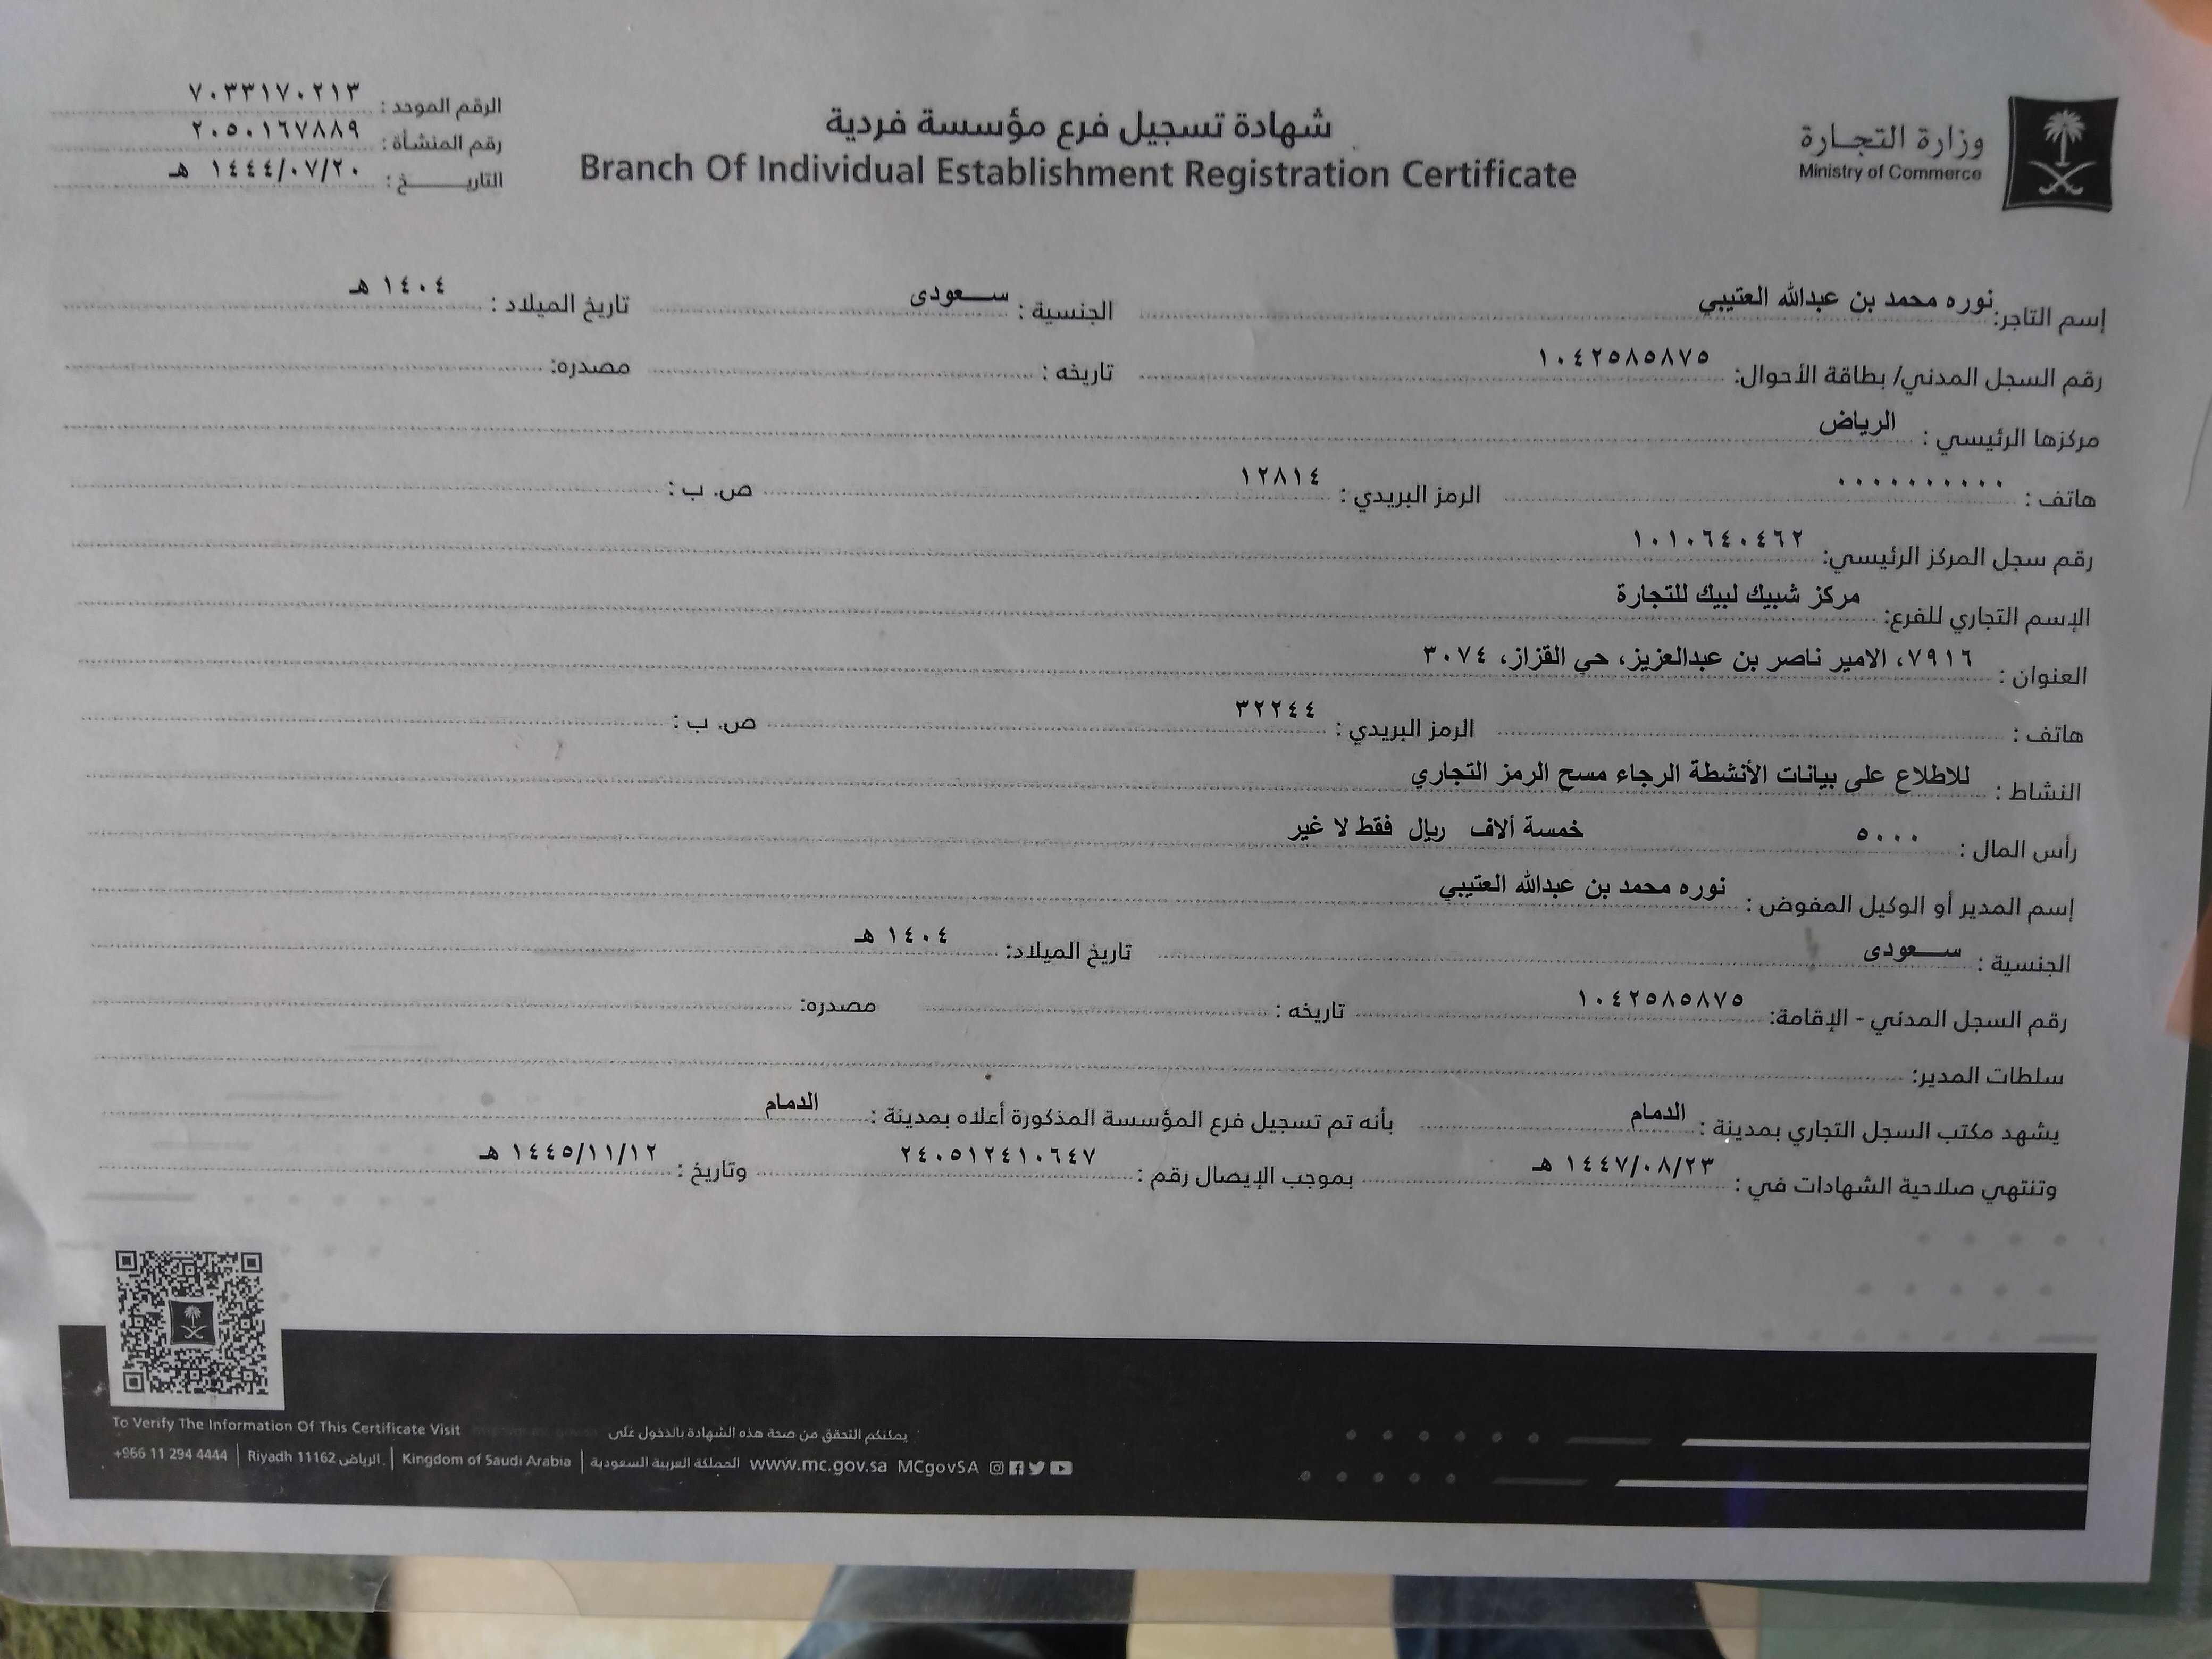 وزارة التجارة
Ministry of Commerce
شهادة تسجيل فرع مؤسسة فردية
Branch Of Individual Establishment Registration Certificate
الرقم الموحد : ٧٠٣٣١٧٠٢١٣
رقم المنشأة : ٢٠٥٠١٦٧٨٨٩
التاريـــــــخ : ١٤٤٤/٠٧/٢٠ هـ
إسم التاجر: نوره محمد بن عبدالله العتيبي الجنسية : ســـعودى تاريخ الميلاد : ١٤٠٤ هـ
رقم السجل المدني/ بطاقة الأحوال: ١٠٤٢٥٨٥٨٧٥ تاريخه : مصدره:
مركزها الرئيسي : الرياض
هاتف : ٠٠٠٠٠٠٠٠٠٠ الرمز البريدي : ١٢٨١٤ ص. ب :
رقم سجل المركز الرئيسي: ١٠١٠٦٤٠٤٦٢
الإسم التجاري للفرع: مركز شبيك لبيك للتجارة
العنوان : ٧٩١٦، الامير ناصر بن عبدالعزيز، حي القزاز، ٣٠٧٤
هاتف : الرمز البريدي : ٣٢٢٤٤ ص. ب :
النشاط : للاطلاع على بيانات الأنشطة الرجاء مسح الرمز التجاري
رأس المال : ٥٠٠٠ خمسة ألاف ريال فقط لا غير
إسم المدير أو الوكيل المفوض : نوره محمد بن عبدالله العتيبي
الجنسية : ســـعودى تاريخ الميلاد: ١٤٠٤ هـ
رقم السجل المدني - الإقامة: ١٠٤٢٥٨٥٨٧٥ تاريخه : مصدره:
سلطات المدير:
يشهد مكتب السجل التجاري بمدينة : الدمام بأنه تم تسجيل فرع المؤسسة المذكورة أعلاه بمدينة : الدمام
وتنتهي صلاحية الشهادات في : ١٤٤٧/٠٨/٢٣ هـ بموجب الإيصال رقم : ٢٤٠٥١٢٤١٠٦٤٧ وتاريخ : ١٤٤٥/١١/١٢ هـ
To Verify The Information Of This Certificate Visit يمكنكم التحقق من صحة هذه الشهادة بالدخول على
+966 11 294 4444 | Riyadh 11162 الرياض | Kingdom of Saudi Arabia | المملكة العربية السعودية www.mc.gov.sa MCgovSA